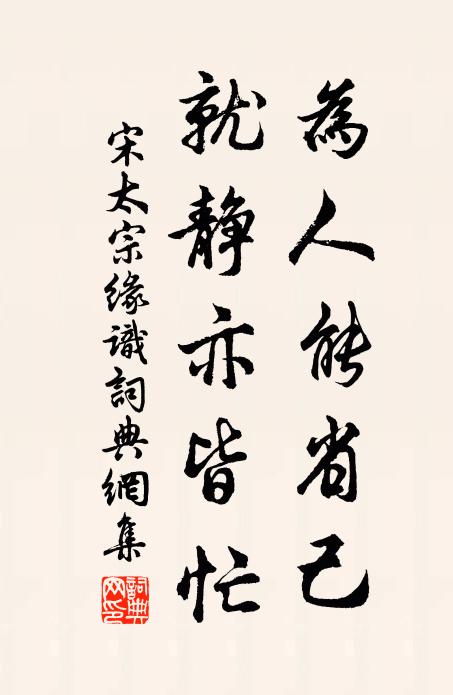 為人能省己
就靜亦皆忙
宋太宗緣識詞典網集
詞典网印